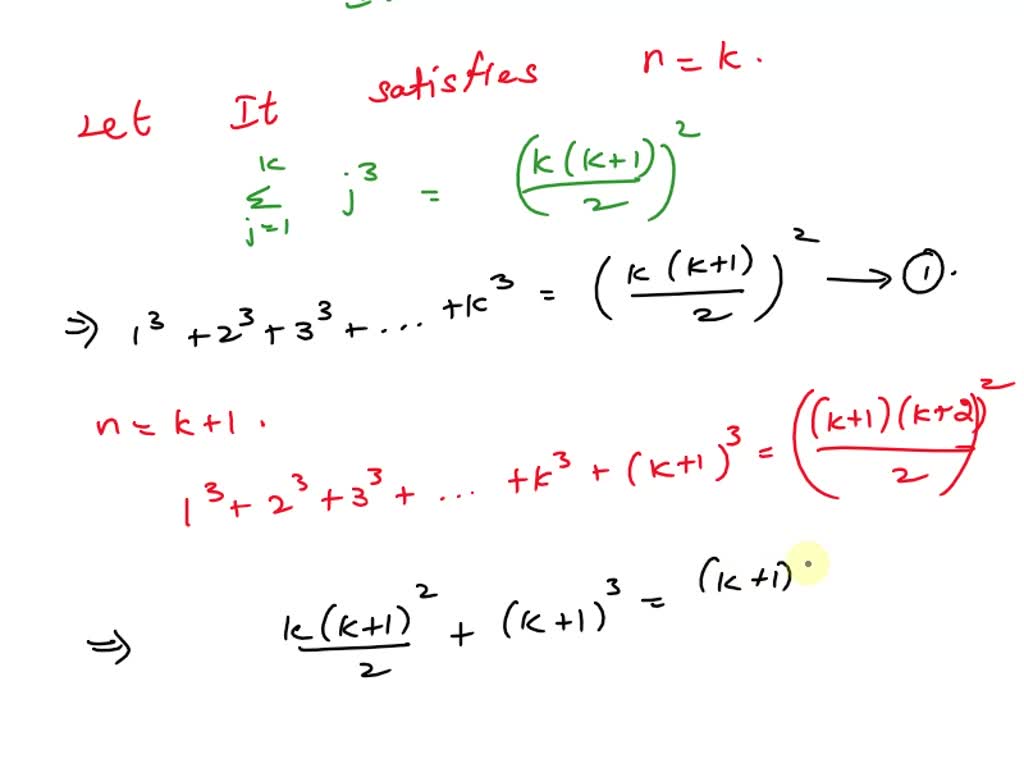 Let It satisfies n = k.
k
Σ j³ = (k(k+1)/2)²
j=1
⇒ 1³ + 2³ + 3³ + ... + k³ = (k(k+1)/2)² → ①.
n = k+1.
1³ + 2³ + 3³ + ... + k³ + (k+1)³ = ((k+1)(k+2)/2)²
⇒ k(k+1)²/2 + (k+1)³ = (k+1)